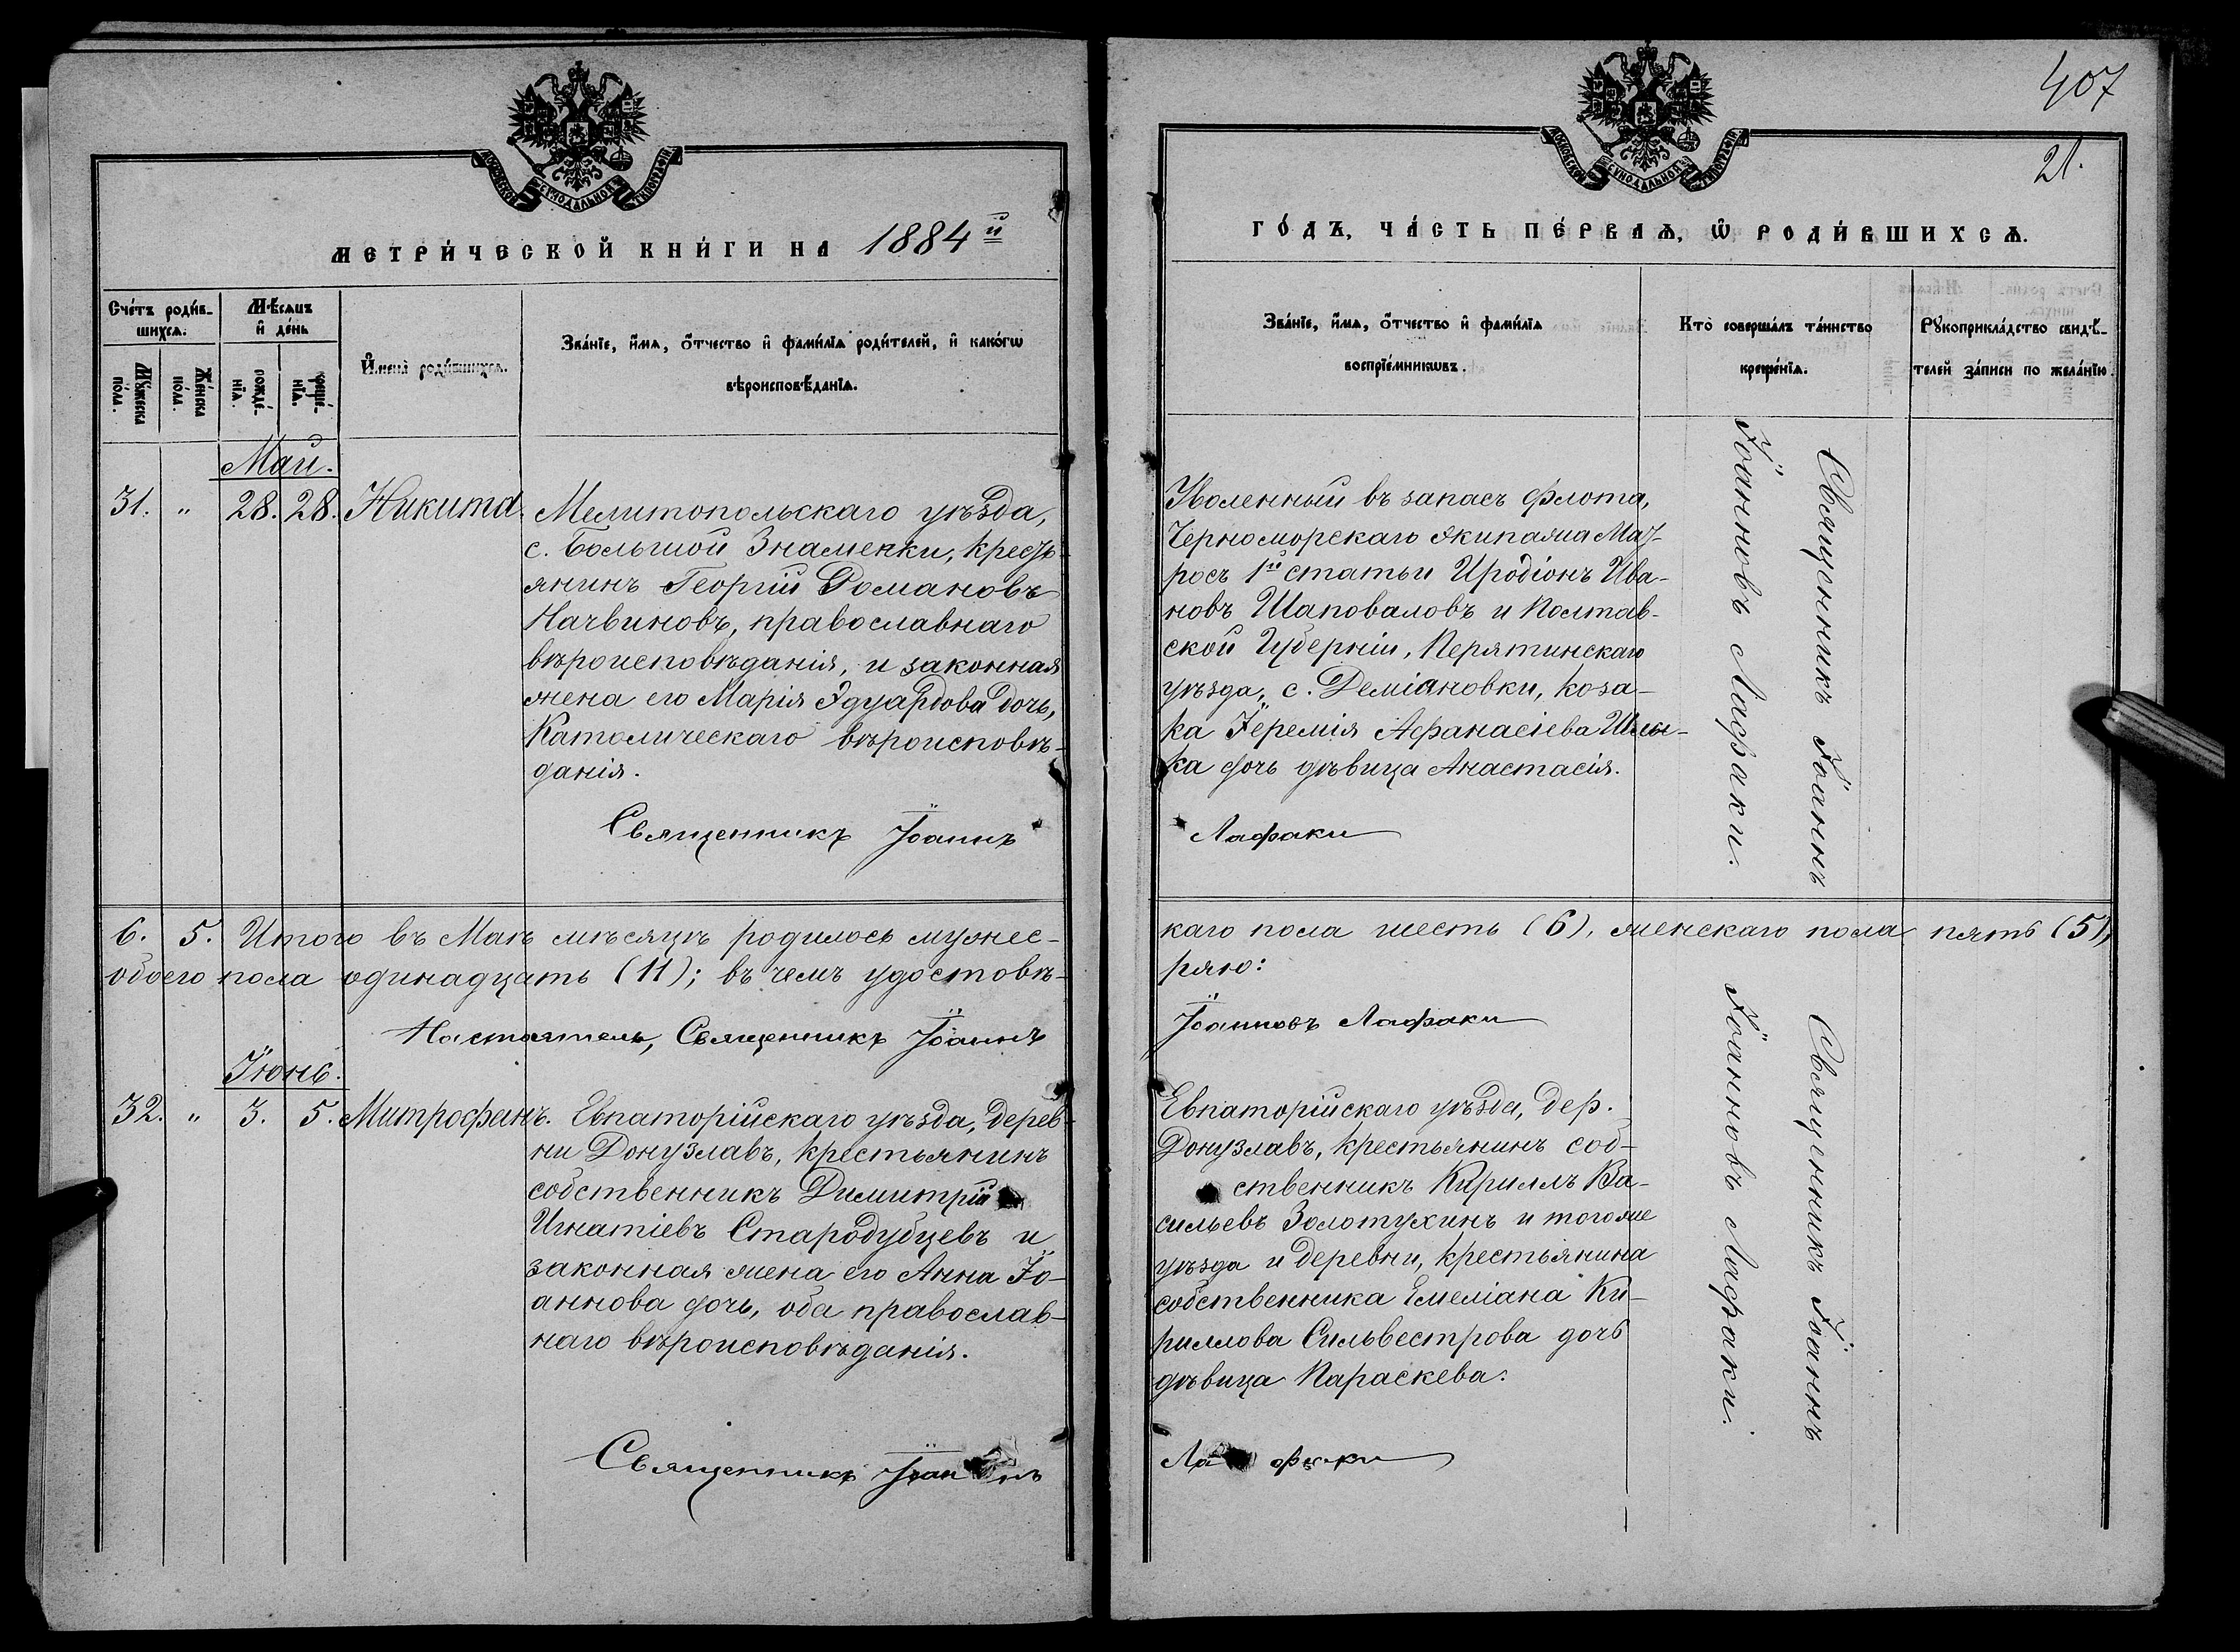 407
21.
МОСКОВСКОЙ СѴНОДАЛЬНОЙ ТИПОГРАФІИ
МОСКОВСКОЙ СѴНОДАЛЬНОЙ ТИПОГРАФІИ
МЕТРИ́ЧЕСКОЙ КНИ́ГИ НА 1884 й
ГО́ДЪ, ЧА́СТЬ ПЕ́РВАѦ, Ѡ РОДИ́ВШИХСѦ.
Сче́тъ роди́в-
шихсѧ.
Мѣ́сѧцъ
и де́нь
Мꙋ́жеска по́ла.
Же́нска по́ла.
рожде́-
нїѧ.
креще́-
нїѧ.
Имена̀ роди́вшихсѧ.
Зва́нїе, и́мѧ, о́тчество и фами́лїѧ роди́телей, и како́гѡ
вѣроисповѣ́данїѧ.
Зва́нїе, и́мѧ, о́тчество и фами́лїѧ
воспрїе́мникѡвъ.
Кто̀ соверша́лъ та́инство
креще́нїѧ.
Рꙋкоприкла́дство свидѣ́-
телей за́писи по жела́нїю.
Май.
31. " 28. 28. Никита.
Мелитопольскаго уѣзда,
с. Большой Знаменки, кресть-
янинъ Георгій Романовъ
Начвиновъ, православнаго
вѣроисповѣданія, и законная
жена его Марія Эдуардова дочь,
Католическаго вѣроисповѣ-
данія.
Священникъ Іоаннъ
Уволенный въ запасъ флота,
Черноморскаго Экипажа Мат-
росъ 1й статьи Иродіонъ Ива-
новъ Шаповаловъ и Полтав-
ской Губерніи, Пирятинскаго
уѣзда, с. Деміановки, коза-
ка Іеремія Афанасіева
ка дочь дѣвица Анастасія.
Лафаки
Священникъ Іоаннъ
Іоанновъ Лафаки.
6. 5. Итого въ Маѣ мѣсяцѣ родилось мужес-
каго пола шесть (6), женскаго пола пять (5),
обоего пола одинадцать (11); въ чемъ удостовѣ-
ряю:
Настоятель, Священникъ Іоаннъ
Іоанновъ Лафаки
Іюнь.
32. " 3. 5. Митрофанъ.
Евпаторійскаго уѣзда, дерев-
ни Донузлавъ, крестьянинъ
собственникъ Димитрій
Игнатіевъ Стародубцевъ и
законная жена его Анна Іо-
аннова дочь, оба православ-
наго вѣроисповѣданія.
Священникъ Іоаннъ
Евпаторійскаго уѣзда, дер.
Донузлавъ, крестьянинъ соб-
ственникъ Кириллъ Ва-
сильевъ Золотухинъ и того же
уѣзда и деревни, крестьянина
собственника Емеліана Ки-
риллова Сильвестрова дочь
дѣвица Параскева.
Лафаки
Священникъ Іоаннъ
Іоанновъ Лафаки.